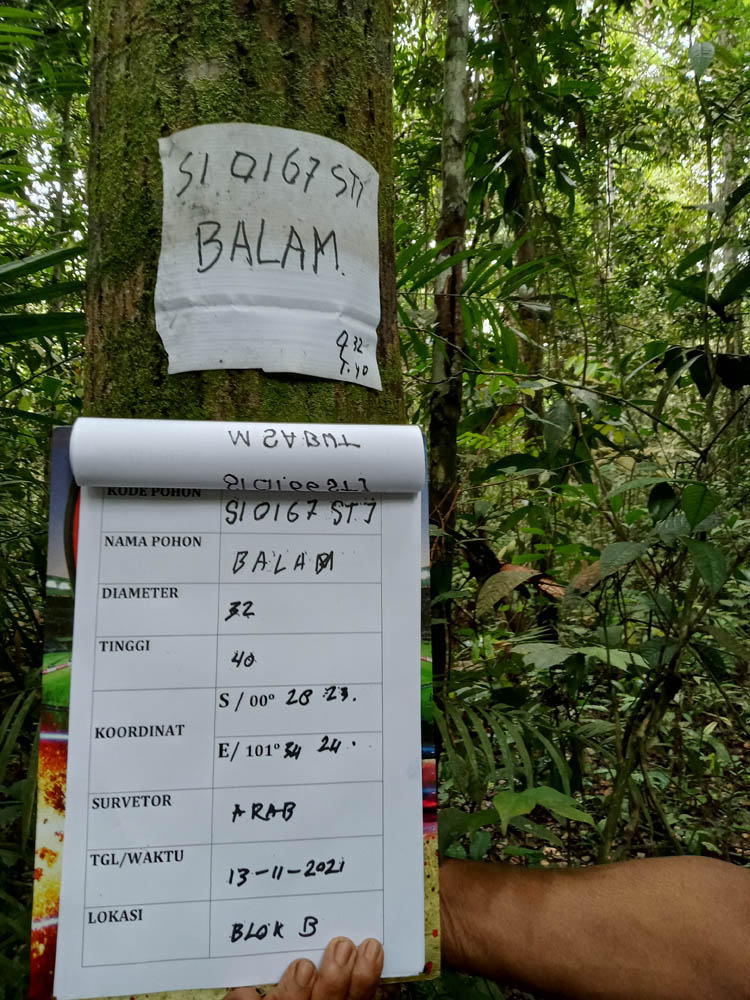 SI 0167 STJ
BALAM.
32
T. 40
KODE POHON SI 0167 STJ
NAMA POHON BALAM
DIAMETER 32
TINGGI 40
KOORDINAT
S / 00° 28 23.
E/ 101° 34 24.
SURVETOR ARAB
TGL/WAKTU 13-11-2021
LOKASI BLOK B